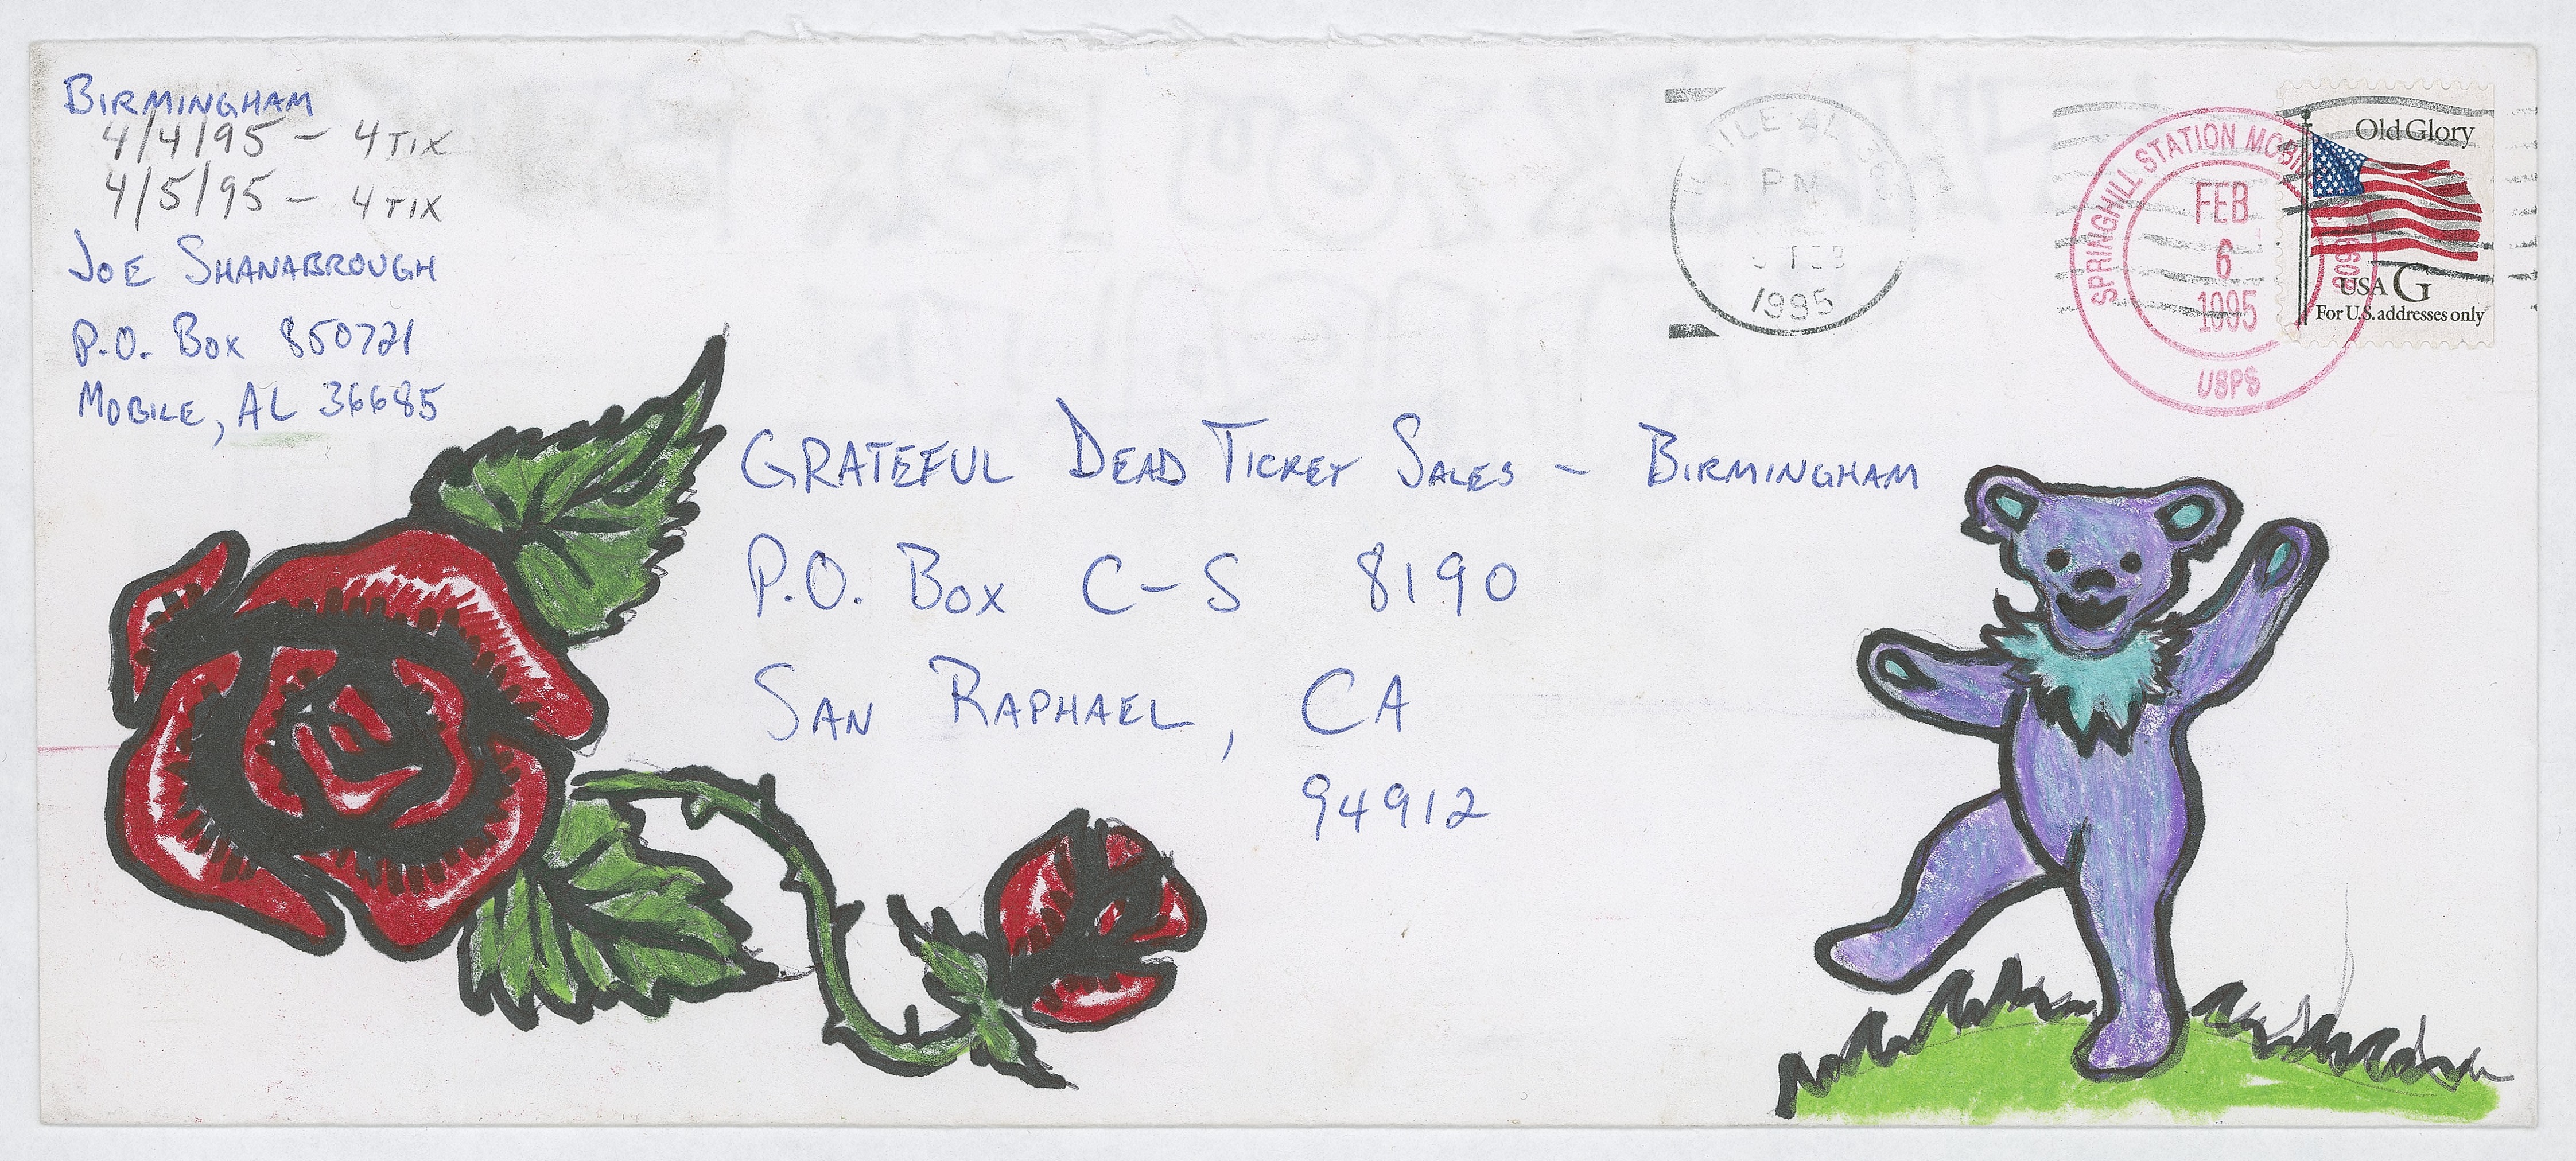 BIRMINGHAM
4/4/95 – 4 TIX
4/5/95 – 4 TIX
JOE SHANABROUGH
P.O. BOX 850721
MOBILE, AL 36685
PM
FEB
1995
SPRINGHILL STATION MOBI
FEB
6
1995
USPS
Old Glory
USA G
For U.S. addresses only
GRATEFUL DEAD TICKET SALES – BIRMINGHAM
P.O. BOX C–S 8190
SAN RAPHAEL, CA
94912